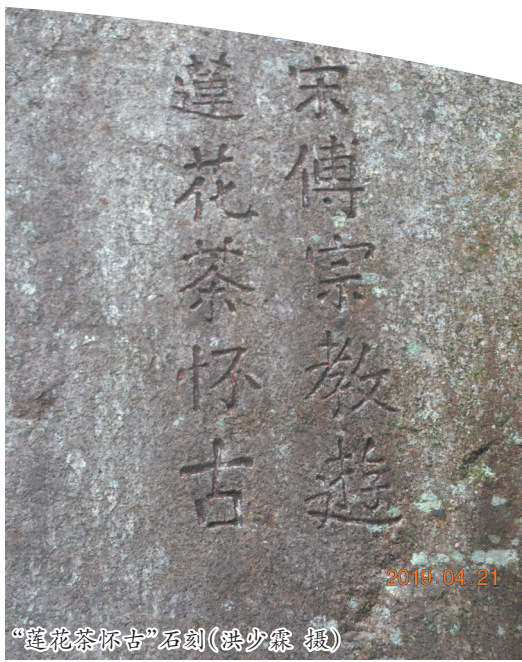 宋傅宗教遊
蓮花茶怀古
2019 04 21
“莲花茶怀古”石刻(洪少霖 摄)